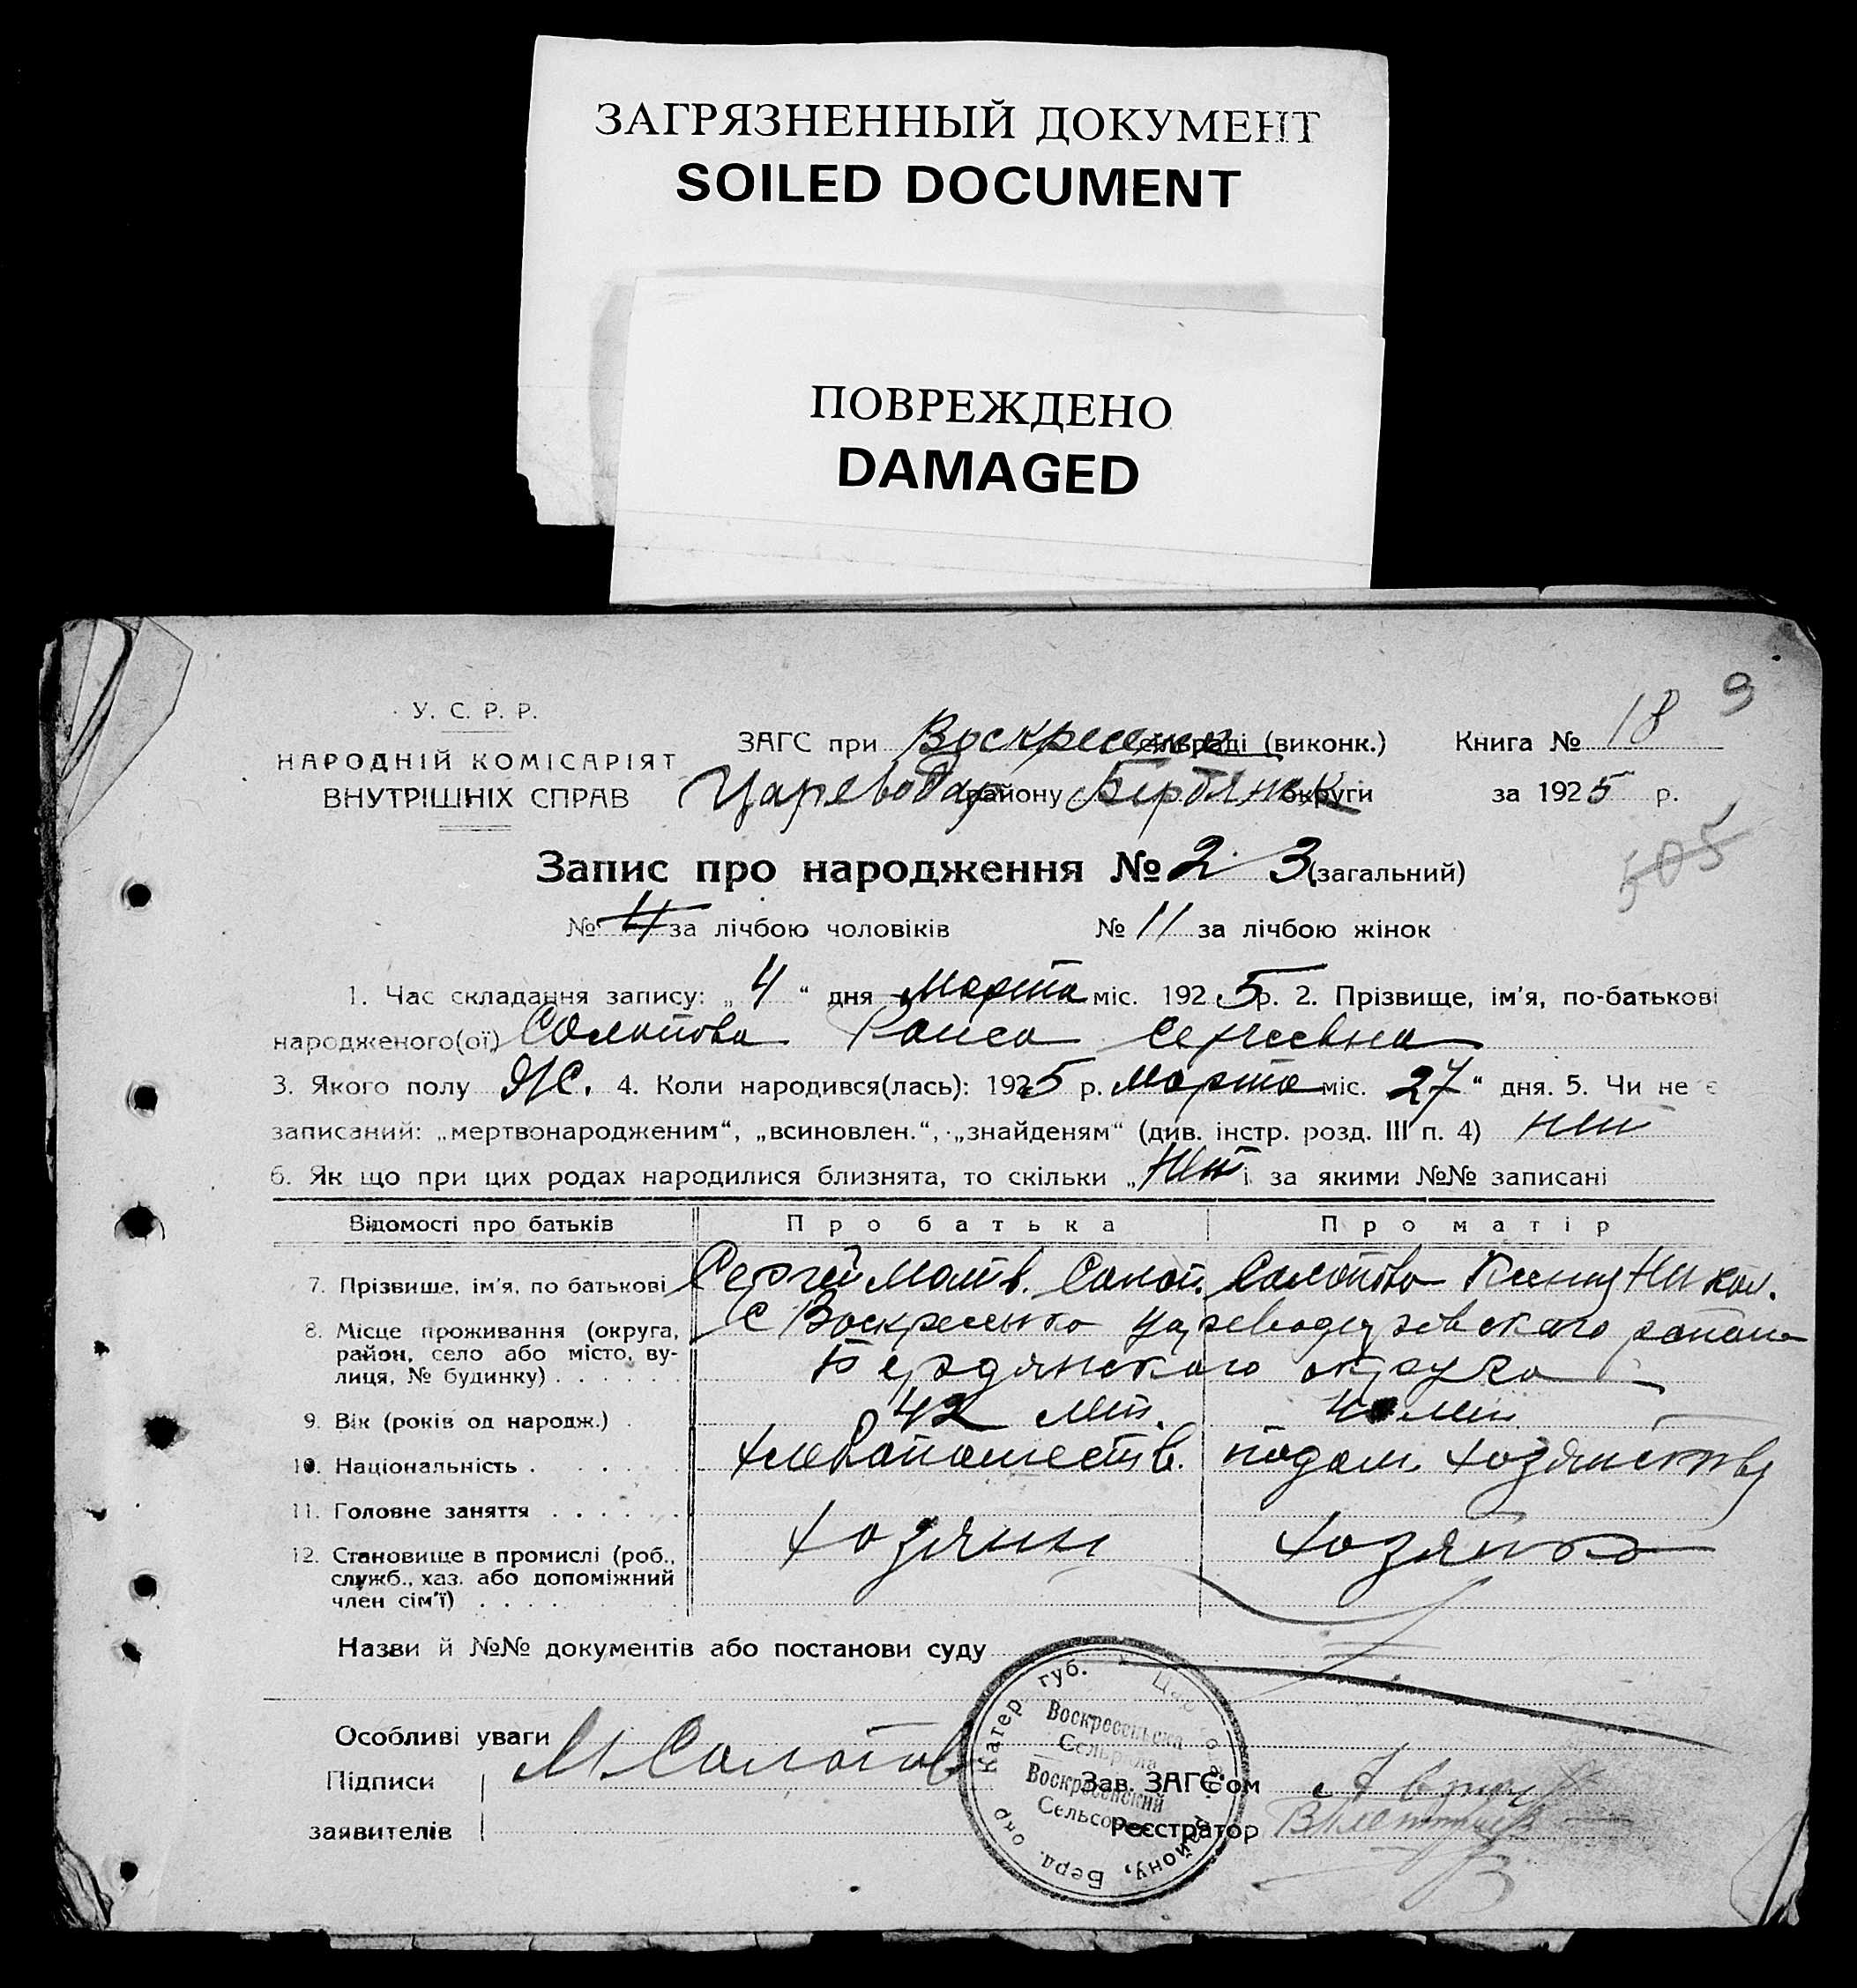 ЗАГРЯЗНЕННЫЙ ДОКУМЕНТ
SOILED DOCUMENT
ПОВРЕЖДЕНО
DAMAGED
9
У. С. Р. Р.
НАРОДНІЙ КОМІСАРІЯТ
ВНУТРІШНІХ СПРАВ
ЗАГС при Воскресенк сільраді (виконк.) Книга № 18
Цареводар району Бердянск округи за 1925 р.
505
Запис про народження № 23 (загальний)
№ 11 за лічбою чоловіків № 11 за лічбою жінок
1. Час складання запису: „4“ дня Марта міс. 1925 р. 2. Прізвище, ім'я, по-батькові
народженого(ої) Солопова Раиса Сергеевна
3. Якого полу Ж. 4. Коли народився(лась): 1925 р. Марта міс. 27“ дня. 5. Чи не є
записаний: „мертвонародженим“, „всиновлен.“, „знайденям“ (див. інстр. розд. III п. 4) нет
6. Як що при цих родах народилися близнята, то скільки „Нет і за якими №№ записані
Відомості про батьків Про батька Про матір
7. Прізвище, ім'я, по батькові Сергей Матв. Солоп. Солопова Никол.
8. Місце проживання (округа, район, село або місто, вулиця, № будинку) С Воскресенка Цареводаровского района
Бердянского округа
9. Вік (років од народж.) 42 лет. 40 лет
10. Національність хлебопашеств. подом. хозяйству
11. Головне заняття
12. Становище в промислі (роб., служб., хаз. або допоміжний член сім'ї) хозяин хозяйка
Назви й №№ документів або постанови суду
Особливі уваги
Підписи М Солопов Зав. ЗАГС'ом
заявителів Реєстратор
Катер губ. району, Берд. окр
Воскресенська
Сельрада
Воскресенский
Сельсо